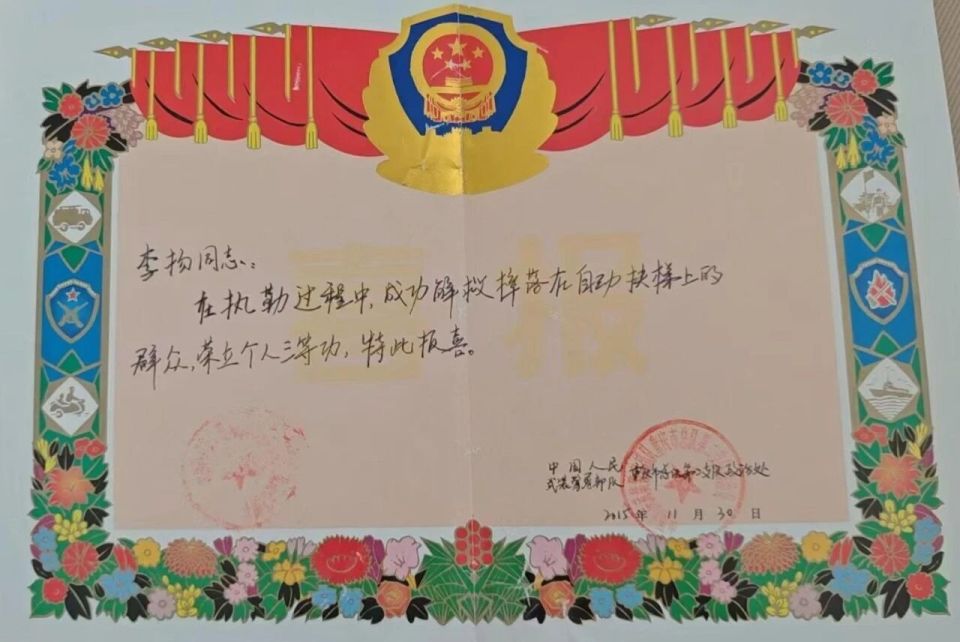 喜报
李扬同志：
在执勤过程中，成功解救摔落在自动扶梯上的
群众，荣立个人三等功，特此报喜。
中国人民
武装警察部队 重庆市总队第二支队政治处
2015年11月30日